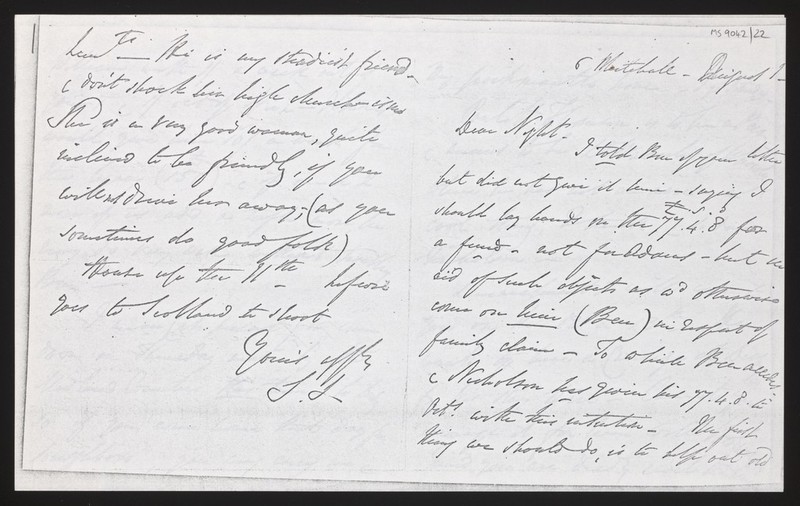 MS 9042/22
6 Whitehall - August 1 -
Dear Night -
I told Ben of your letter
but did not give it him - saying I
should lay hands on the £77.4.8 for
a fund - not for Adams - but in
aid of such objects as wd otherwise
come on him (Ben) in respect of
family claim - To which Ben
& Nicholson has given his 77.4.8. to
with this intention - The first
thing we should do, is to help out old
is my steadiest friend -
& don't shock her high church
She is a very good woman, quite
inclined to be friendly, if you
will not drive her away; (as you
sometimes do good folk)
House up the 11th - before
goes to Scotland to shoot
Yours affly